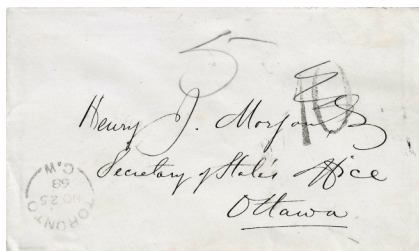 5
10
Henry J. Morgan
Secretary of State's Office
Ottawa
TORONTO
C.W
NO 25
68